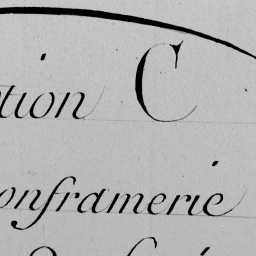 tion C
onframerie